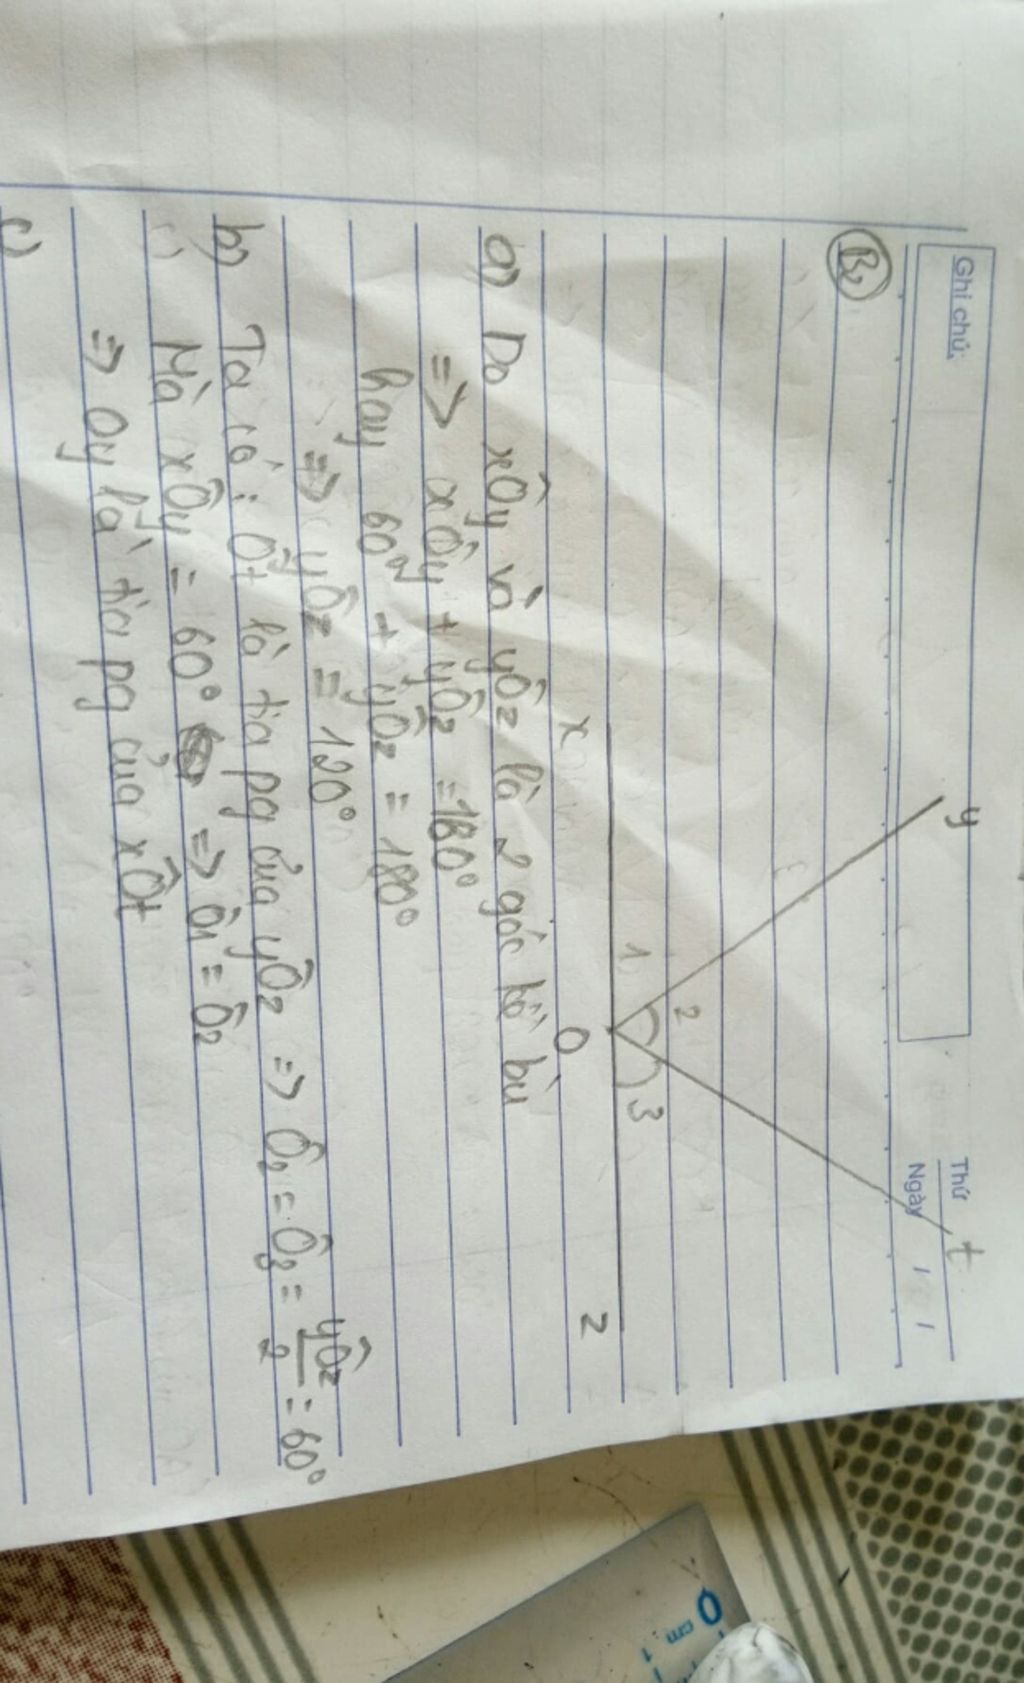 Ghi chú:
Thứ
Ngày / /
B2
y
t
1 2 3
x O z
a) Do xÔy và yÔz là 2 góc kề bù
=> xÔy + yÔz = 180°
hay 60° + yÔz = 180°
=> yÔz = 120°
b) Ta có: Ot là tia pg của yÔz => Ô2 = Ô3 = yÔz/2 = 60°
Mà xÔy = 60° => Ô1 = Ô2
=> Oy là tia pg của xÔt
c)
0 cm 1